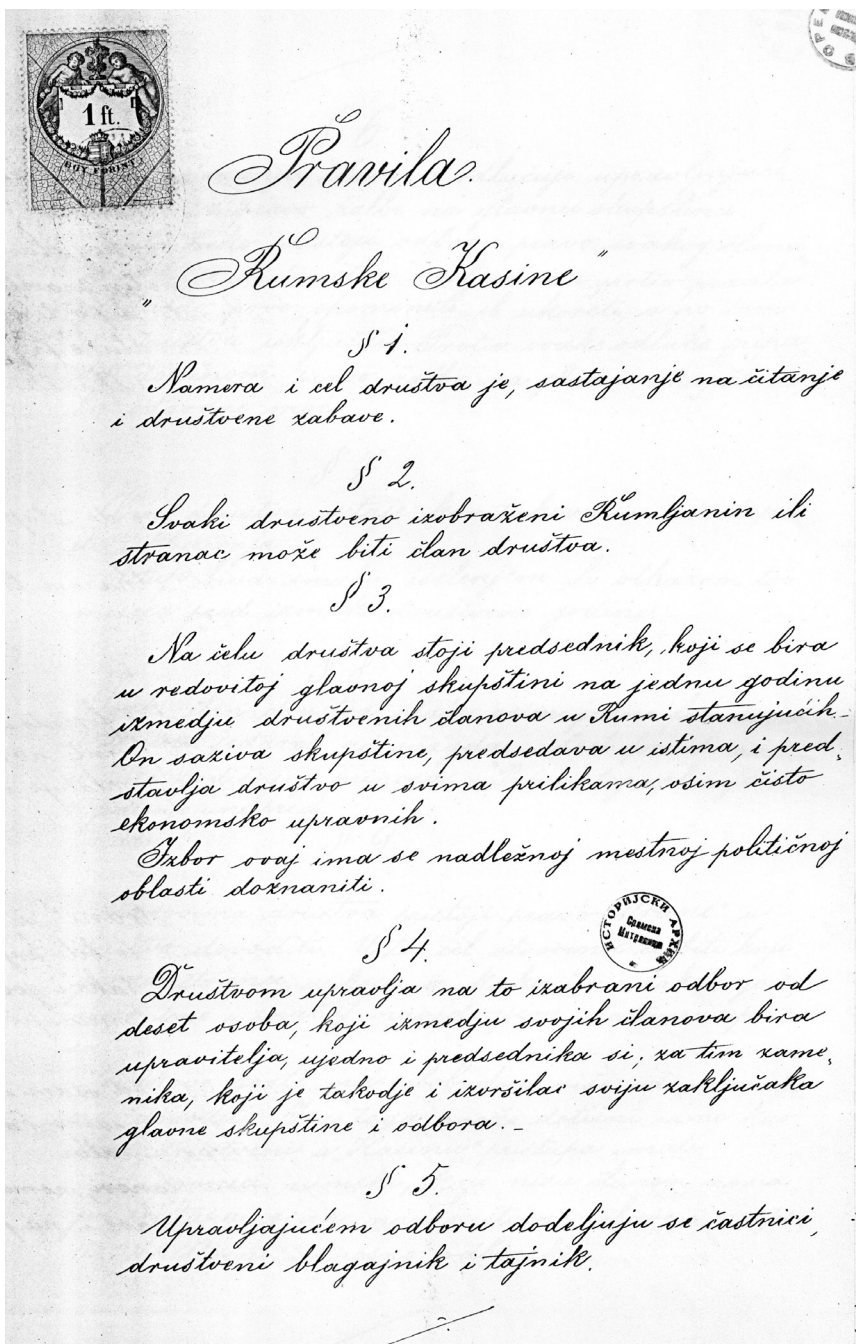 1 ft.
EGY FORINT.
Pravila.
„Rumske Kasine"
§ 1.
Namera i cel društva je, sastajanje na čitanje
i društvene zabave.
§ 2.
Svaki društveno izobraženi Rumljanin ili
stranac može biti član društva.
§ 3.
Na čelu društva stoji predsednik, koji se bira
u redovitoj glavnoj skupštini na jednu godinu
izmedju društvenih članova u Rumi stanujućih.
On saziva skupštine, predsedava u istima, i pred-
stavlja društvo u svima prilikama, osim čisto
ekonomsko upravnih.
Izbor ovaj ima se nadležnoj mestnoj političnoj
oblasti doznaniti.
ИСТОРИЈСКИ АРХИВ
Сремска
Митровица
§ 4.
Društvom upravlja na to izabrani odbor od
deset osoba, koji izmedju svojih članova bira
upravitelja, ujedno i predsednika si; za tim zame-
nika, koji je takodje i izvršilac sviju zaključaka
glavne skupštine i odbora. –
§ 5.
Upravljajućem odboru dodeljuju se častnici,
društveni blagajnik i tajnik.